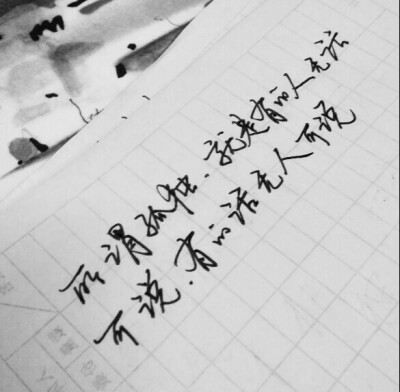 所谓孤独.就是有的人无话
可说.有的话无人可说